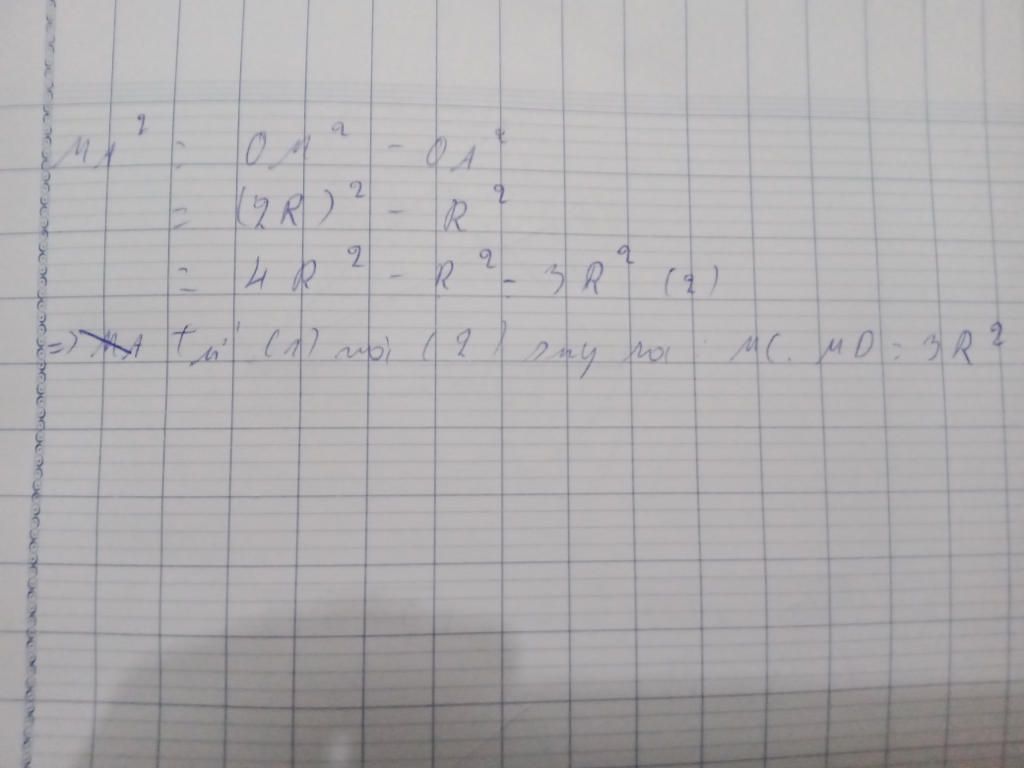 MA² = OM² - OA²
= (2R)² - R²
= 4R² - R² = 3R² (2)
=> MA từ (1) và (2) suy ra : MC. MD = 3R²